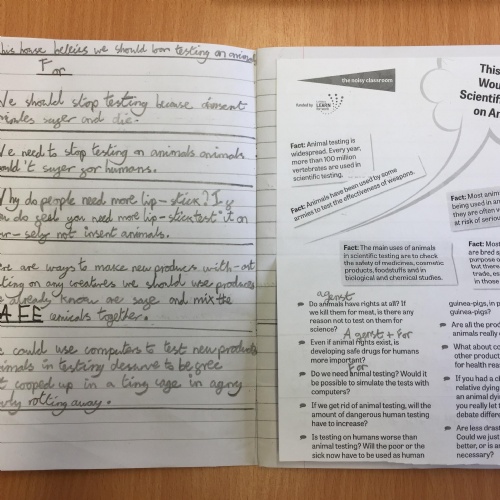 this house beleies we should ban testing on animals
For
We should stop testing because
animles suger and die.
We need to stop testing on animals animals
suger for humans.
Why do people need more lip-stick? If
you do feel you need more lip-stick test it on
your-self not insent animals.
There are ways to make new produces with-out
testing on any creatures we should use produces
we already know are safe and mix the
SAFE together.
We could use computers to test new products
animals in testing desurve to be free
not cooped up in a ting cage in agony
slowly rotting away.
the noisy classroom
funded by
LEARN
This
Wou
Scientific
on An
Fact: Animal testing is
widespread. Every year,
more than 100 million
vertebrates are used in
scientific testing.
Fact: Animals have been used by some
armies to test the effectiveness of weapons.
Fact: Most anim
being used in an
they are often v
at risk of seriou
Fact: The main uses of animals
in scientific testing are to check
the safety of medicines, cosmetic
products, foodstuffs and in
biological and chemical studies.
Fact: Most
are bred s
purpose o
but there
trade, es
in those
agenst
Do animals have rights at all? If
we kill them for meat, is there any
reason not to test on them for
science?
Agenst + For
Even if animal rights exist, is
developing safe drugs for humans
more important?
For
Do we need animal testing? Would it
be possible to simulate the tests with
computers?
If we get rid of animal testing, will the
amount of dangerous human testing
have to increase?
Is testing on humans worse than
animal testing? Will the poor or the
sick now have to be used as human
guinea-pigs, in p
guinea-pigs?
Are all the produ
animals really n
What about co
other product
for health reas
If you had a cl
relative dying
an animal dyi
you really let t
debate differen
Are less drast
Could we just
better, or is an
necessary?